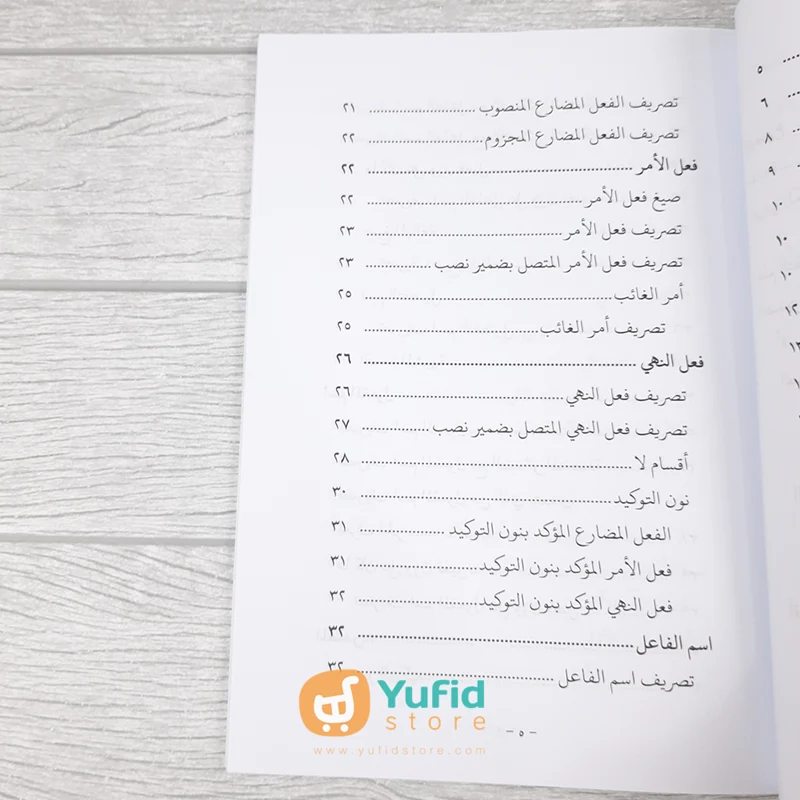 تصريف الفعل المضارع المنصوب ............................ ٢١
تصريف الفعل المضارع المجزوم ............................ ٢٢
فعل الأمر ............................ ٢٢
صيغ فعل الأمر ............................ ٢٢
تصريف فعل الأمر ............................ ٢٣
تصريف فعل الأمر المتصل بضمير نصب ................. ٢٣
أمر الغائب ............................ ٢٥
تصريف أمر الغائب ............................ ٢٥
فعل النهي ............................ ٢٦
تصريف فعل النهي ............................ ٢٦
تصريف فعل النهي المتصل بضمير نصب ................. ٢٧
أقسام لا ............................ ٢٨
نون التوكيد ............................ ٣٠
الفعل المضارع المؤكد بنون التوكيد ..................... ٣١
فعل الأمر المؤكد بنون التوكيد ............................ ٣١
فعل النهي المؤكد بنون التوكيد ............................ ٣٢
اسم الفاعل ............................ ٣٢
تصريف اسم الفاعل ............................ ٣٢
- ٥ -
Yufid
store
www.yufidstore.com
٥
٦
٨
٩
١٠
١٠
١٠
١٢